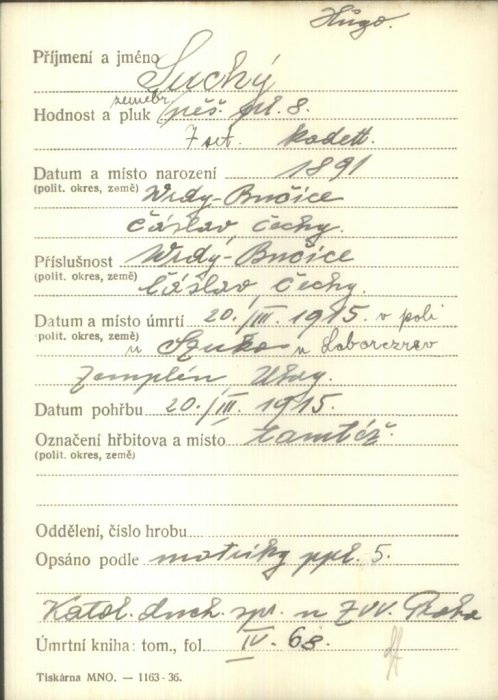 Hugo.
Příjmení a jméno Suchý
zeměbr.
Hodnost a pluk pěš. pl. 8.
7 set. kadett.
Datum a místo narození 1891
(polit. okres, země) Wrdy-Bučice
Čáslav, Čechy.
Příslušnost Wrdy-Bučice
(polit. okres, země) Čáslav, Čechy.
Datum a místo úmrtí 20./III. 1915. v poli
(polit. okres, země) u Szuko u Laborczrev
Zemplén, Uhry.
Datum pohřbu 20./III. 1915.
Označení hřbitova a místo tamtéž.
(polit. okres, země)
Oddělení, číslo hrobu
Opsáno podle matriky ppl. 5.
Katol. duch. spr. u ZVV. Praha
Úmrtní kniha: tom., fol. IV. 68.
Tiskárna MNO. — 1163-36.